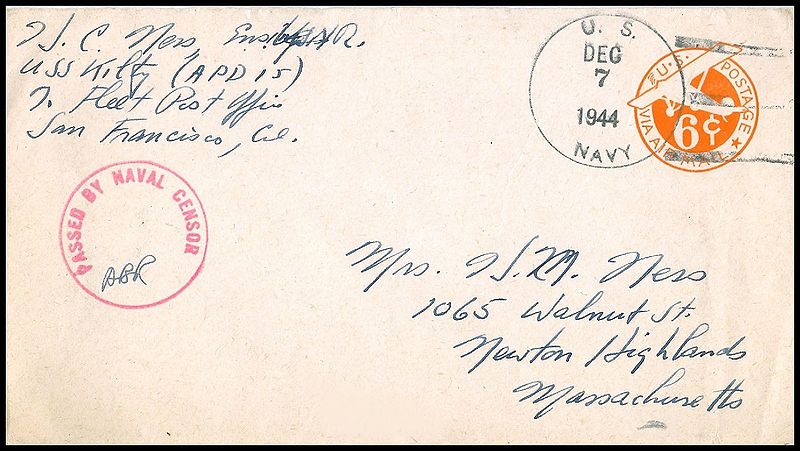 N.C. Ness, Ensign USNR.
USS Kilty (APD 15)
℅ Fleet Post Office
San Francisco, Cal.
U. S.
DEC
7
1944
NAVY
U.S. POSTAGE
6¢
VIA AIR MAIL
PASSED BY NAVAL CENSOR
ABR
Mrs. N.M. Ness
1065 Walnut St.
Newton Highlands
Massachusetts